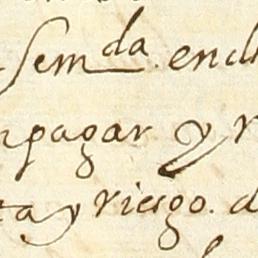 Sem da. end
pagar y r
ta y riesgo. d